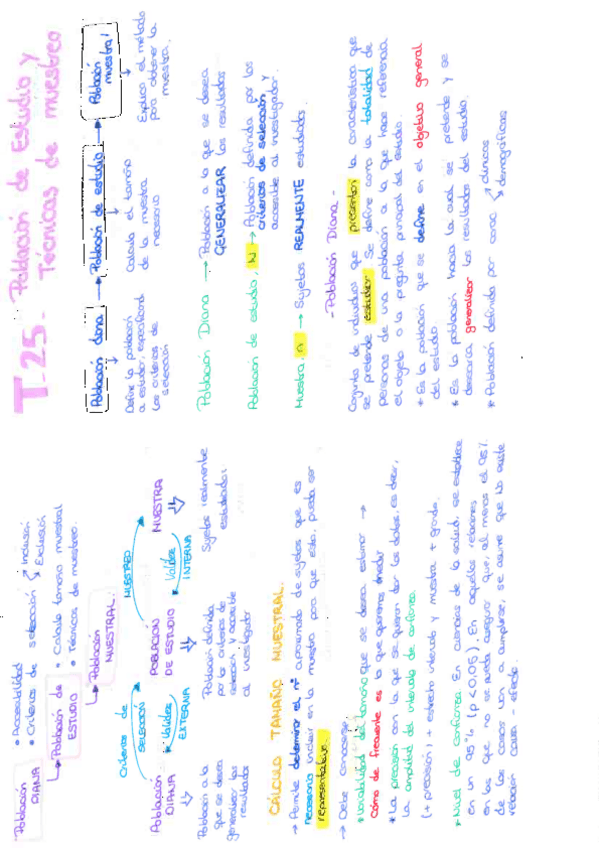 T.25- Población de Estudio y
Técnicas de muestreo
Población diana → Población de estudio → Población muestral
Define la población
a estudiar, especificand
los criterios de
selección
Calcula el tamaño
de la muestra
necesario
Explica el método
para obtener la
muestra.
Población Diana → Población a la que se desea
GENERALIZAR los resultados
Población de estudio, N → Población definida por los
criterios de selección y
accesible al investigador.
Muestra, n → Sujetos REALMENTE estudiados.
- Población Diana -
Conjunto de individuos que presentan la característica que
se pretende estudiar. Se define como la totalidad de
personas de una población a la que hace referencia
el objeto o la pregunta principal del estudio.
* Es la población que se define en el objetivo general
del estudio.
* Es la población hacia la cual se pretende y se
desearía generalizar los resultados del estudio.
* Población definida por carac
clínicas
demográficas
Población
DIANA
• Accesibilidad
• Criterios de selección
Inclusión
Exclusión
Población de
ESTUDIO
• Calculo tamaño muestral
• Técnicas de muestreo.
Población
MUESTRAL.
Criterios de
SELECCIÓN
MUESTREO
POBLACION
DIANA
Validez
EXTERNA
POBLACION
DE ESTUDIO
Validez
INTERNA
MUESTRA
Población a la
que se desea
generalizar los
resultados
Población definida
por los criterios de
selección y accesible
al investigador
Sujetos realmente
estudiados
CÁLCULO TAMAÑO MUESTRAL.
→ Permite determinar el nº aproximado de sujetos que es
necesario incluir en la muestra para que esta pueda ser
representativa.
→ Debe conocerse:
* Variabilidad del tamaño que se desea estimar →
cómo de frecuente es lo que queremos medir
* La precisión con la que se quieren dar los datos, es decir,
la amplitud del intervalo de confianza.
(+ precisión) + estrecho intervalo y muestra + grande.
* Nivel de confianza. En ciencias de la salud, se establece
en un 95% (p<0.05). En aquellas relaciones
en las que no se pueda asegurar que, al menos el 95%
de los casos van a cumplirse, se asume que NO existe
relación causa - efecto.